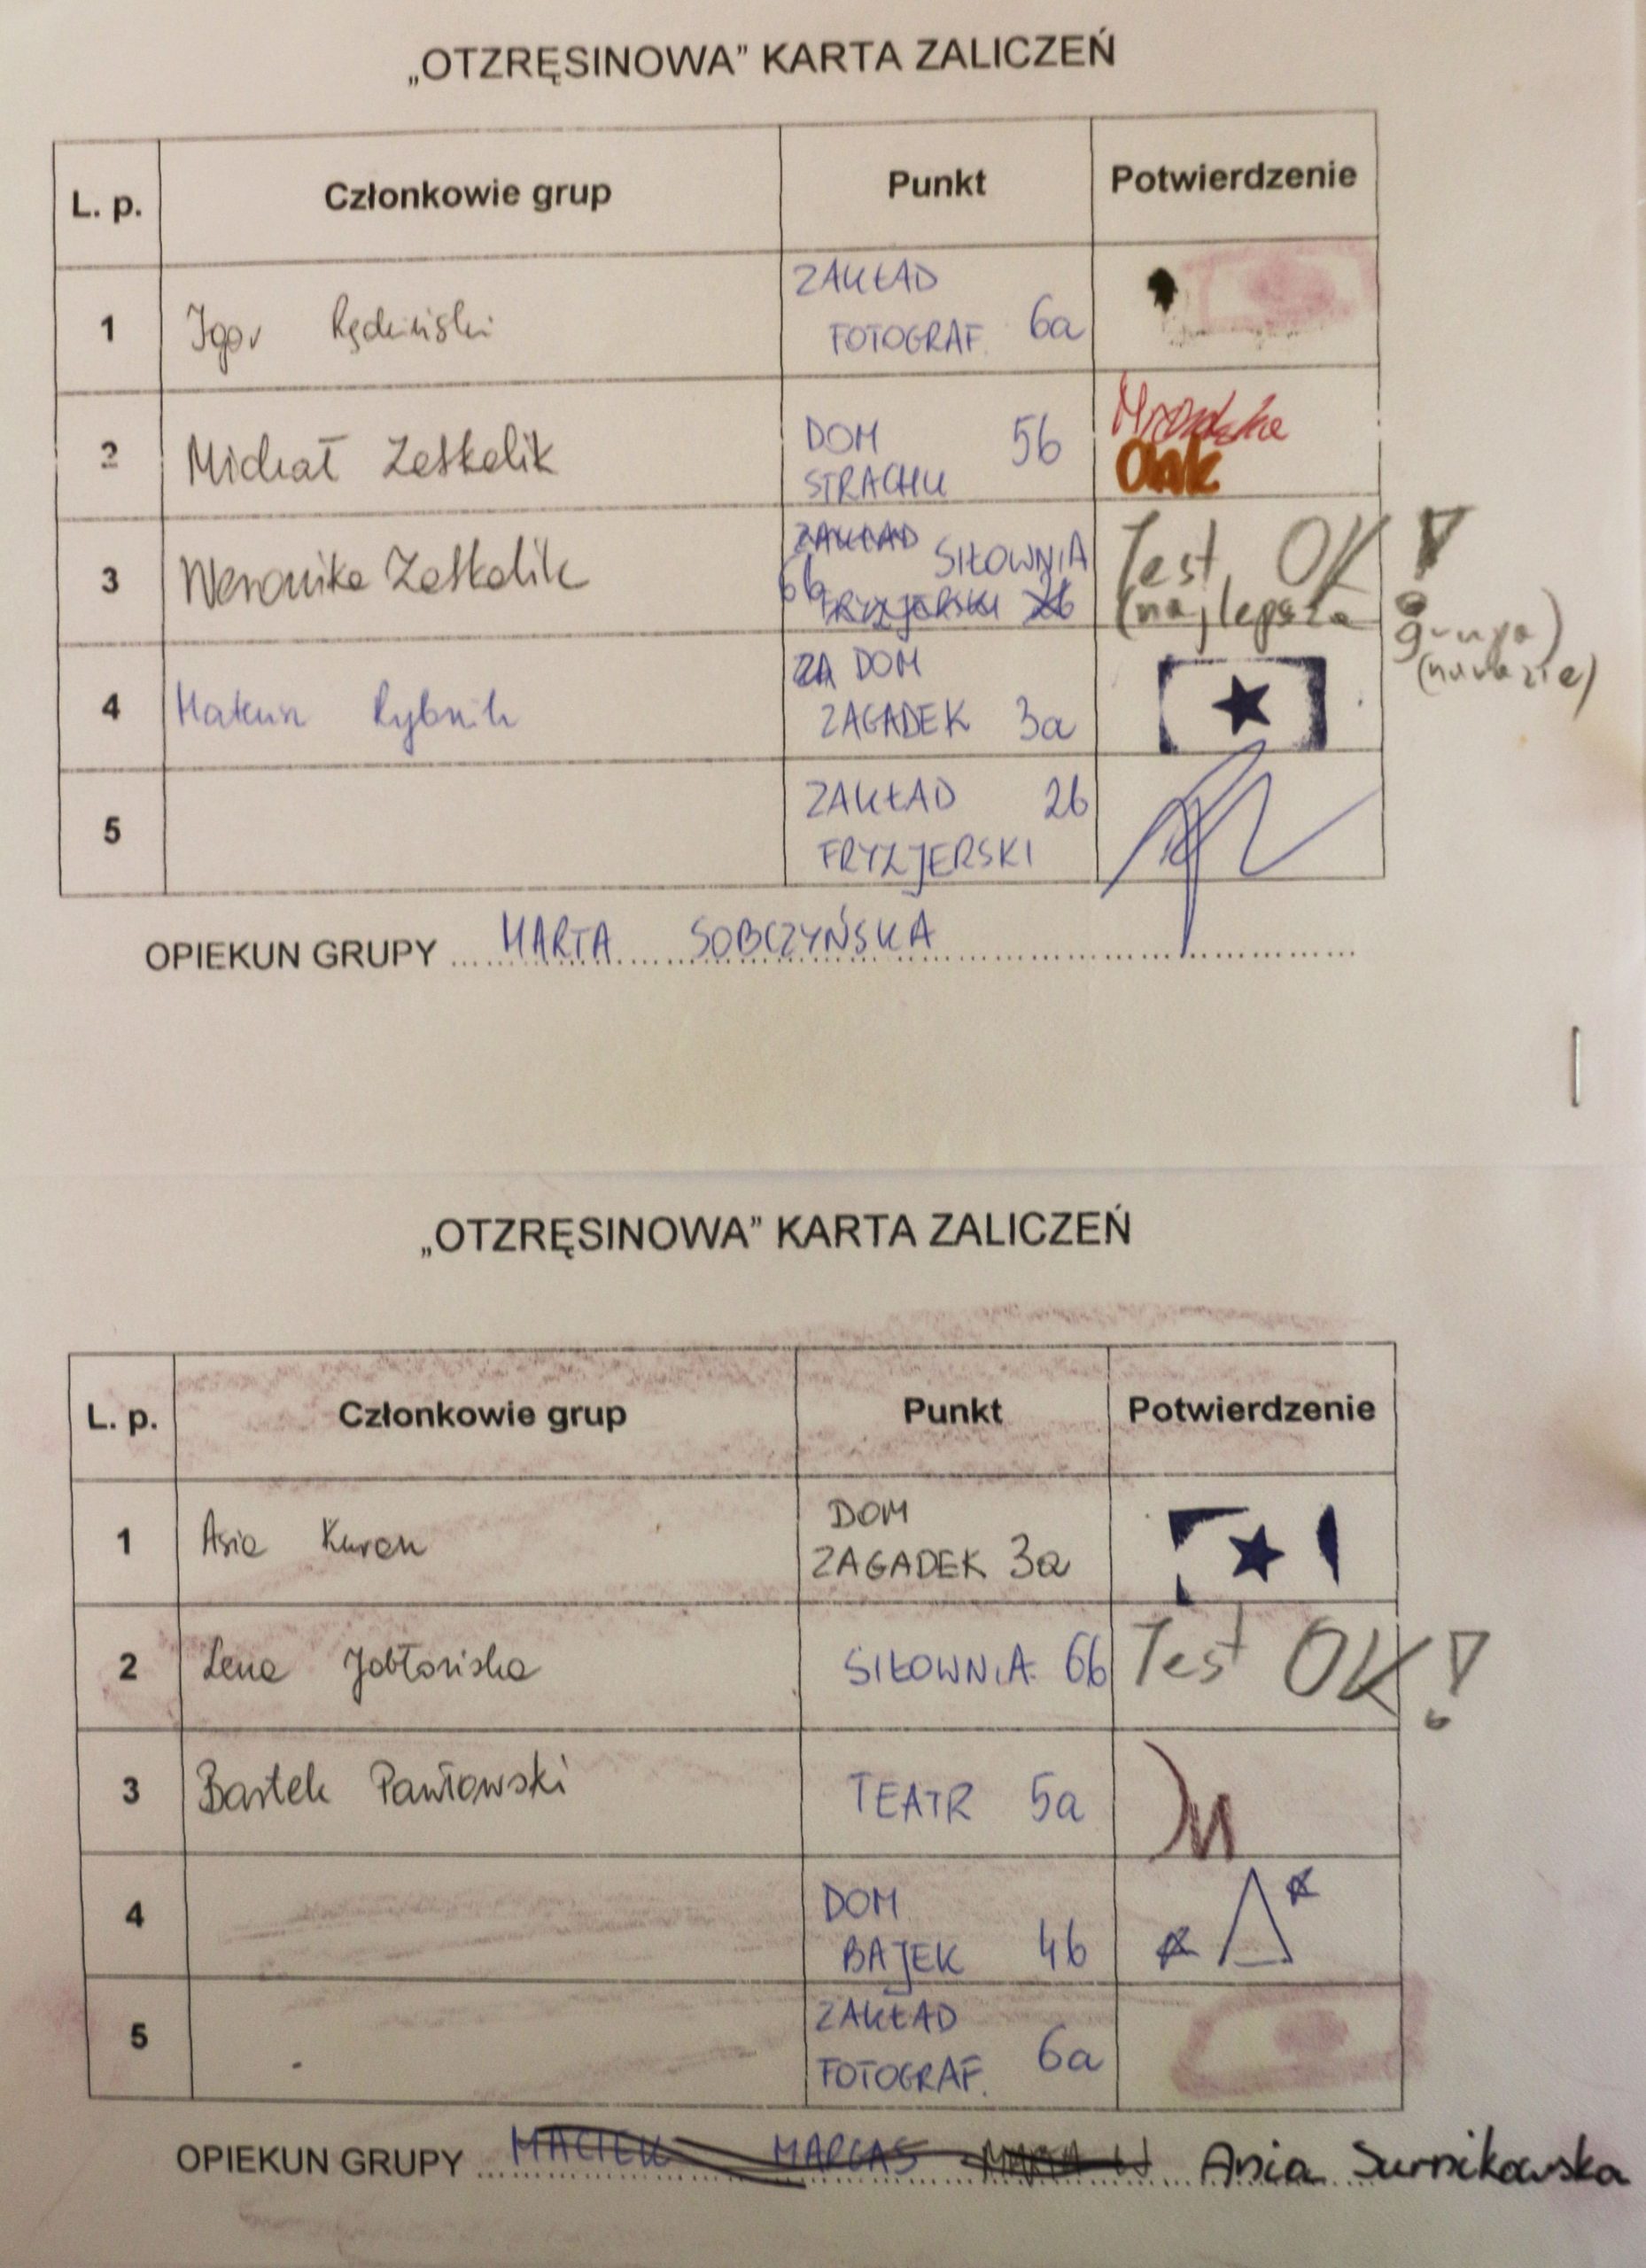 „OTZRĘSINOWA” KARTA ZALICZEŃ
L. p. Członkowie grup Punkt Potwierdzenie
1 Igor ZAKŁAD
FOTOGRAF. 6a
2 Michał Zeskalik DOM 5b
STRACHU OAK
3 Weronika Zeskalik ZAKŁAD SIŁOWNIA Test OK!
6b FRYZJERSKI 2b (najlepsza grupa)
(narazie)
4 Mateusz Rybnik ZA DOM
ZAGADEK 3a
5 ZAKŁAD 2b
FRYZJERSKI
OPIEKUN GRUPY MARTA SOBCZYŃSKA
„OTZRĘSINOWA” KARTA ZALICZEŃ
L. p. Członkowie grup Punkt Potwierdzenie
1 Asia Kuran DOM
ZAGADEK 3a
2 Lena Jabłońska SIŁOWNIA 6b Test OK!
3 Bartek Pawłowski TEATR 5a
4 DOM
BAJEK 4b
5 ZAKŁAD
FOTOGRAF. 6a
OPIEKUN GRUPY MACIEK MARGAS Ania Surnikowska